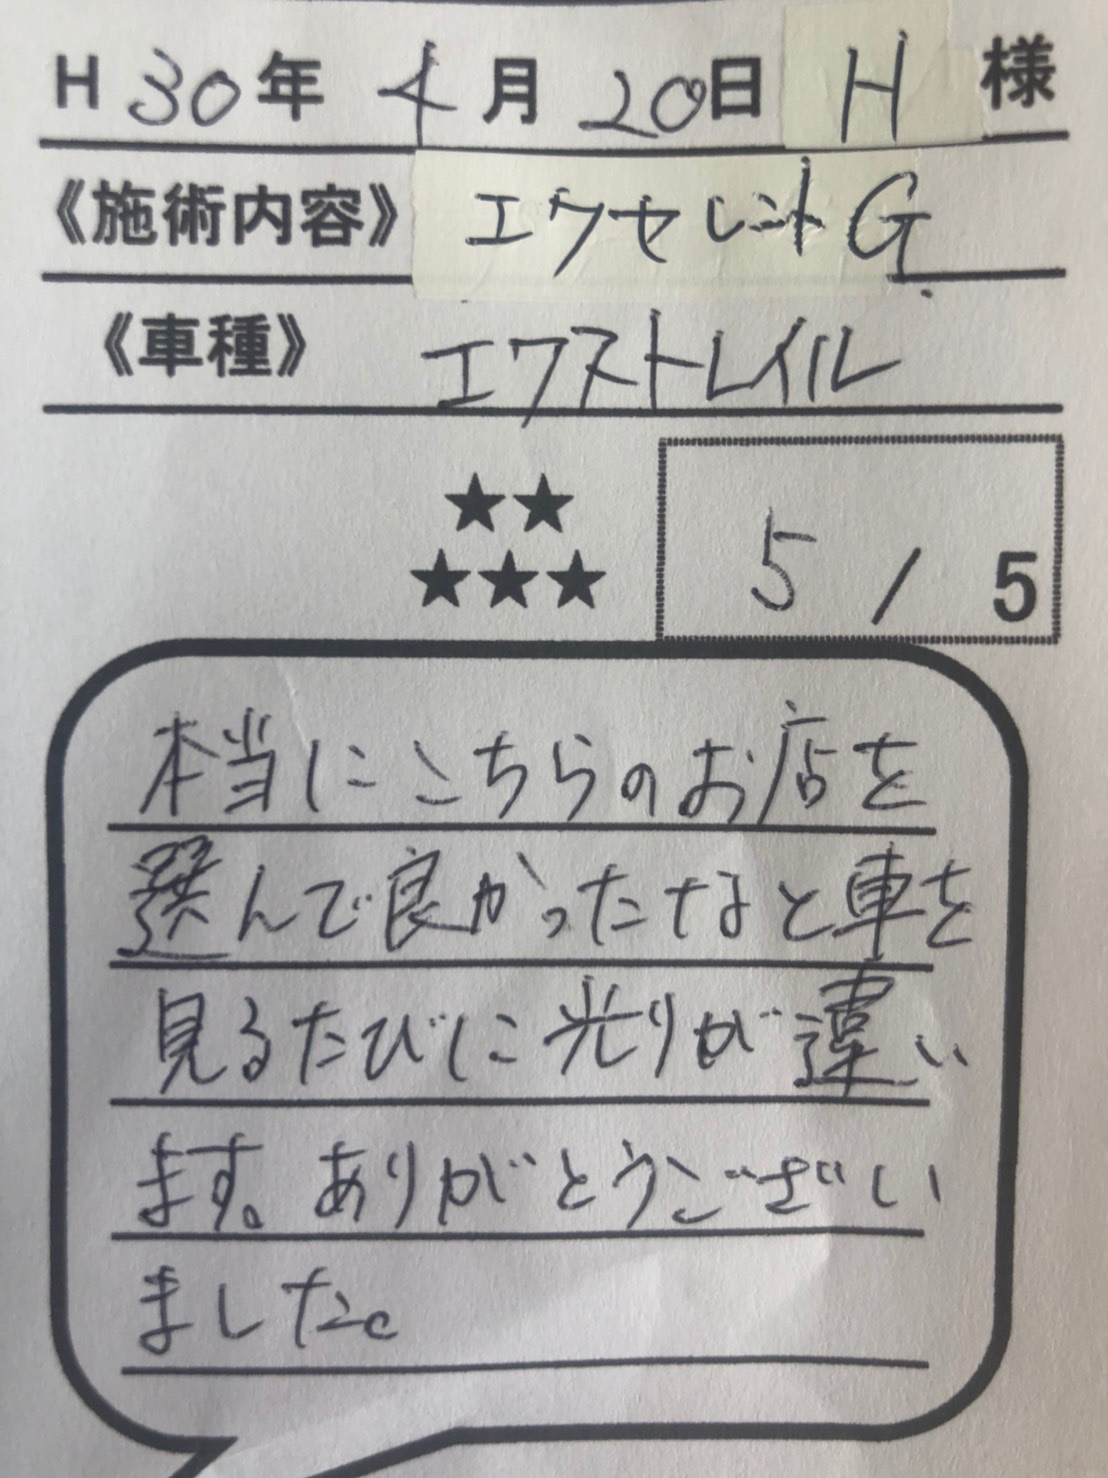 H 30年 4月 20日 H 様
《施術内容》 エクセレントG
《車種》 エクストレイル
★★
★★★ 5 / 5
本当にこちらのお店を
選んで良かったなと車を
見るたびに光りが違い
ます。ありがとうござい
ました。